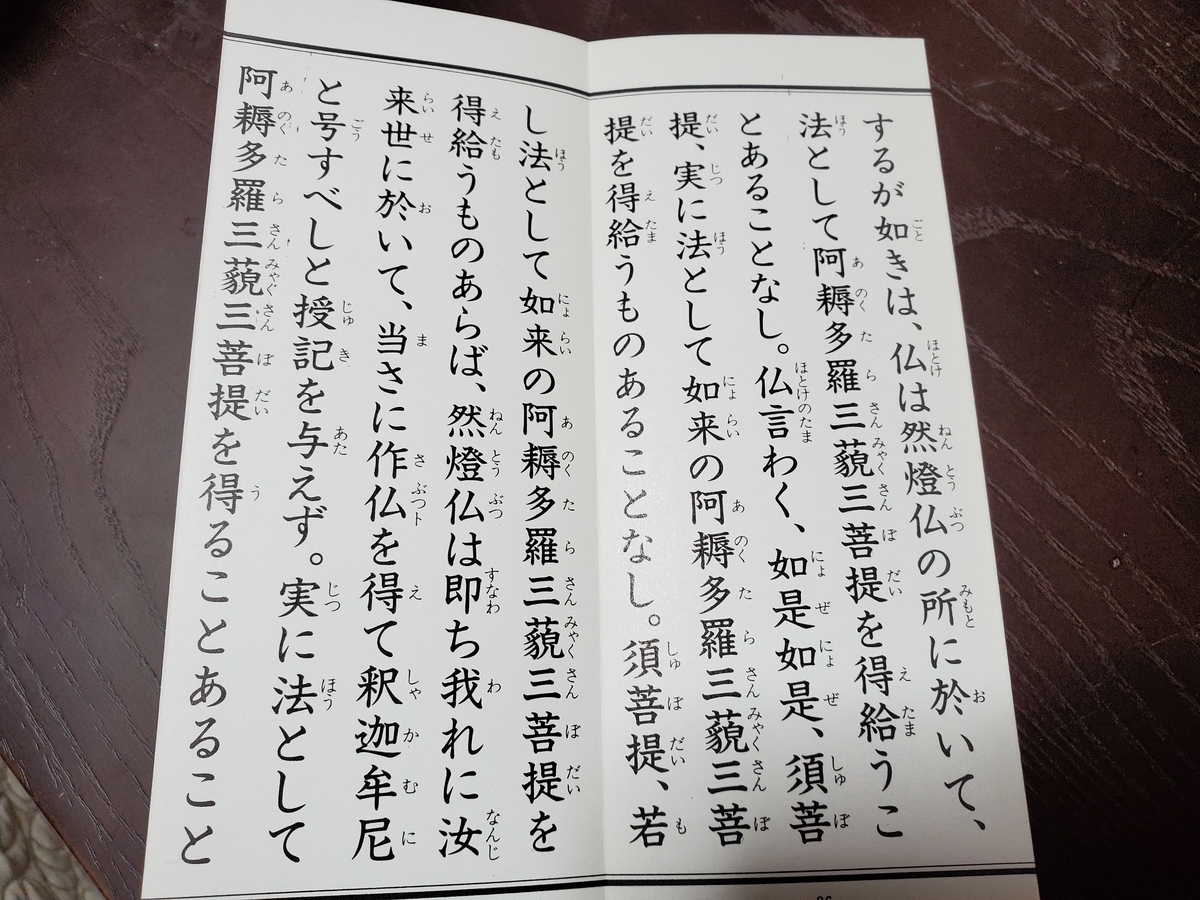 するが如きは、仏は然燈仏の所に於いて、
法として阿耨多羅三藐三菩提を得給うこ
とあることなし。仏言わく、如是如是、須菩
提、実に法として如来の阿耨多羅三藐三菩
提を得給うものあることなし。須菩提、若
し法として如来の阿耨多羅三藐三菩提を
得給うものあらば、然燈仏は即ち我れに汝
来世に於いて、当さに作仏を得て釈迦牟尼
と号すべしと授記を与えず。実に法として
阿耨多羅三藐三菩提を得ることあること